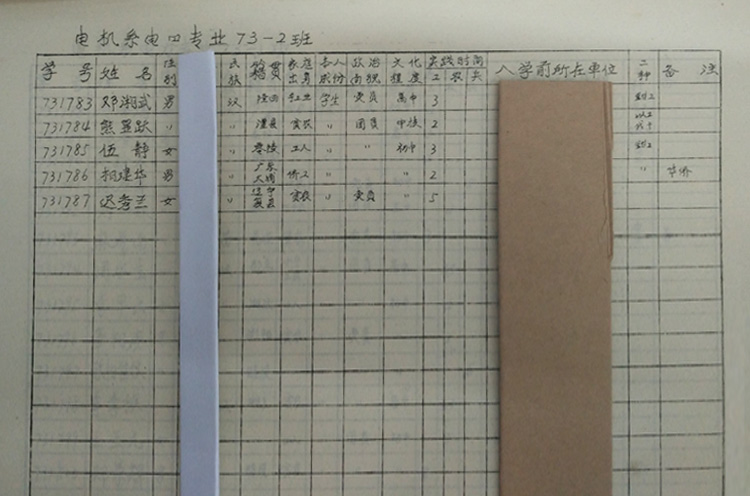 电机系电四专业73-2班
学号 姓名 性别 民族 籍贯 家庭出身 本人成份 政治面貌 文化程度 实践时间 工 农 兵 入学前所在单位 工种 备注
731783 邓湘武 男 汉 学生 党员 高中 3
731784 熊显跃 〃 〃 澧县 贫农 〃 团员 中技 2
731785 伍静 女 〃 零陵 工人 〃 〃 初中 3
731786 柯建华 男 〃 广东 〃 〃 〃 2 〃 华侨
731787 迟秀兰 女 〃 辽宁 贫农 〃 党员 〃 5